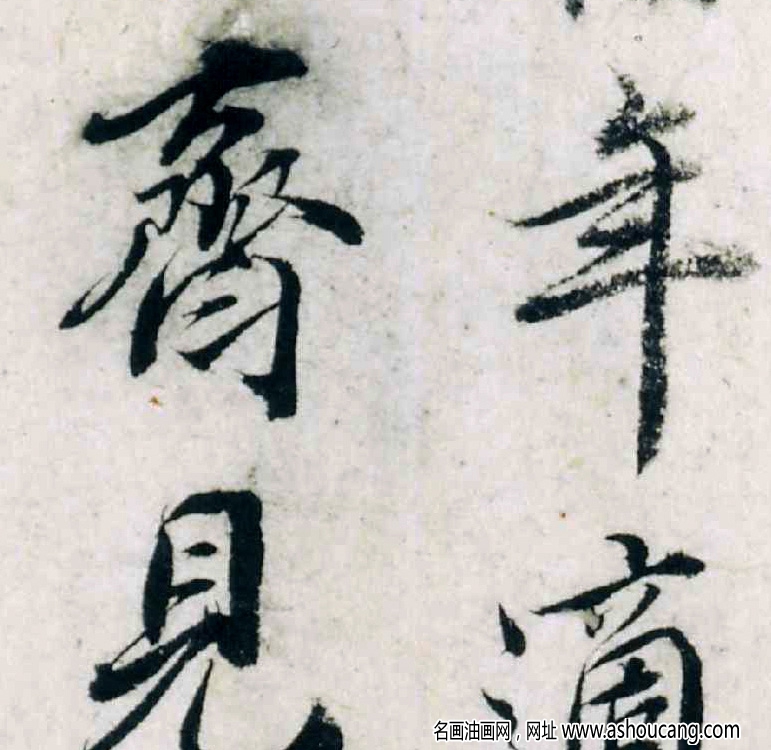 年滴
齊見
名画油画网，网址 www.ashoucang.com